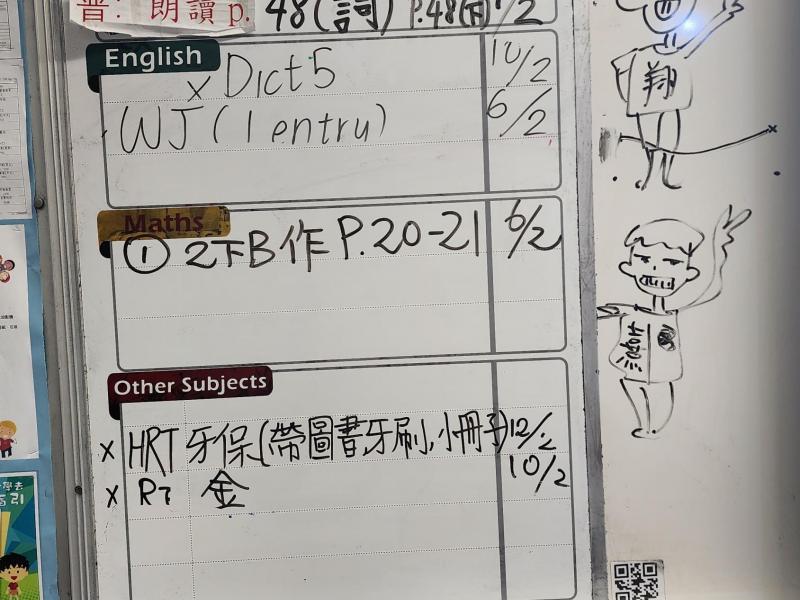 普: 朗讀 p. 48(詞) P.48(下) /2
English
x Dict 5 10/2
WJ (1 entry) 6/2
Maths
① 2下B作 P.20-21 6/2
Other Subjects
x HRT 牙保(帶圖書,牙刷,小冊子) 12/2
x RT 金 10/2
翔